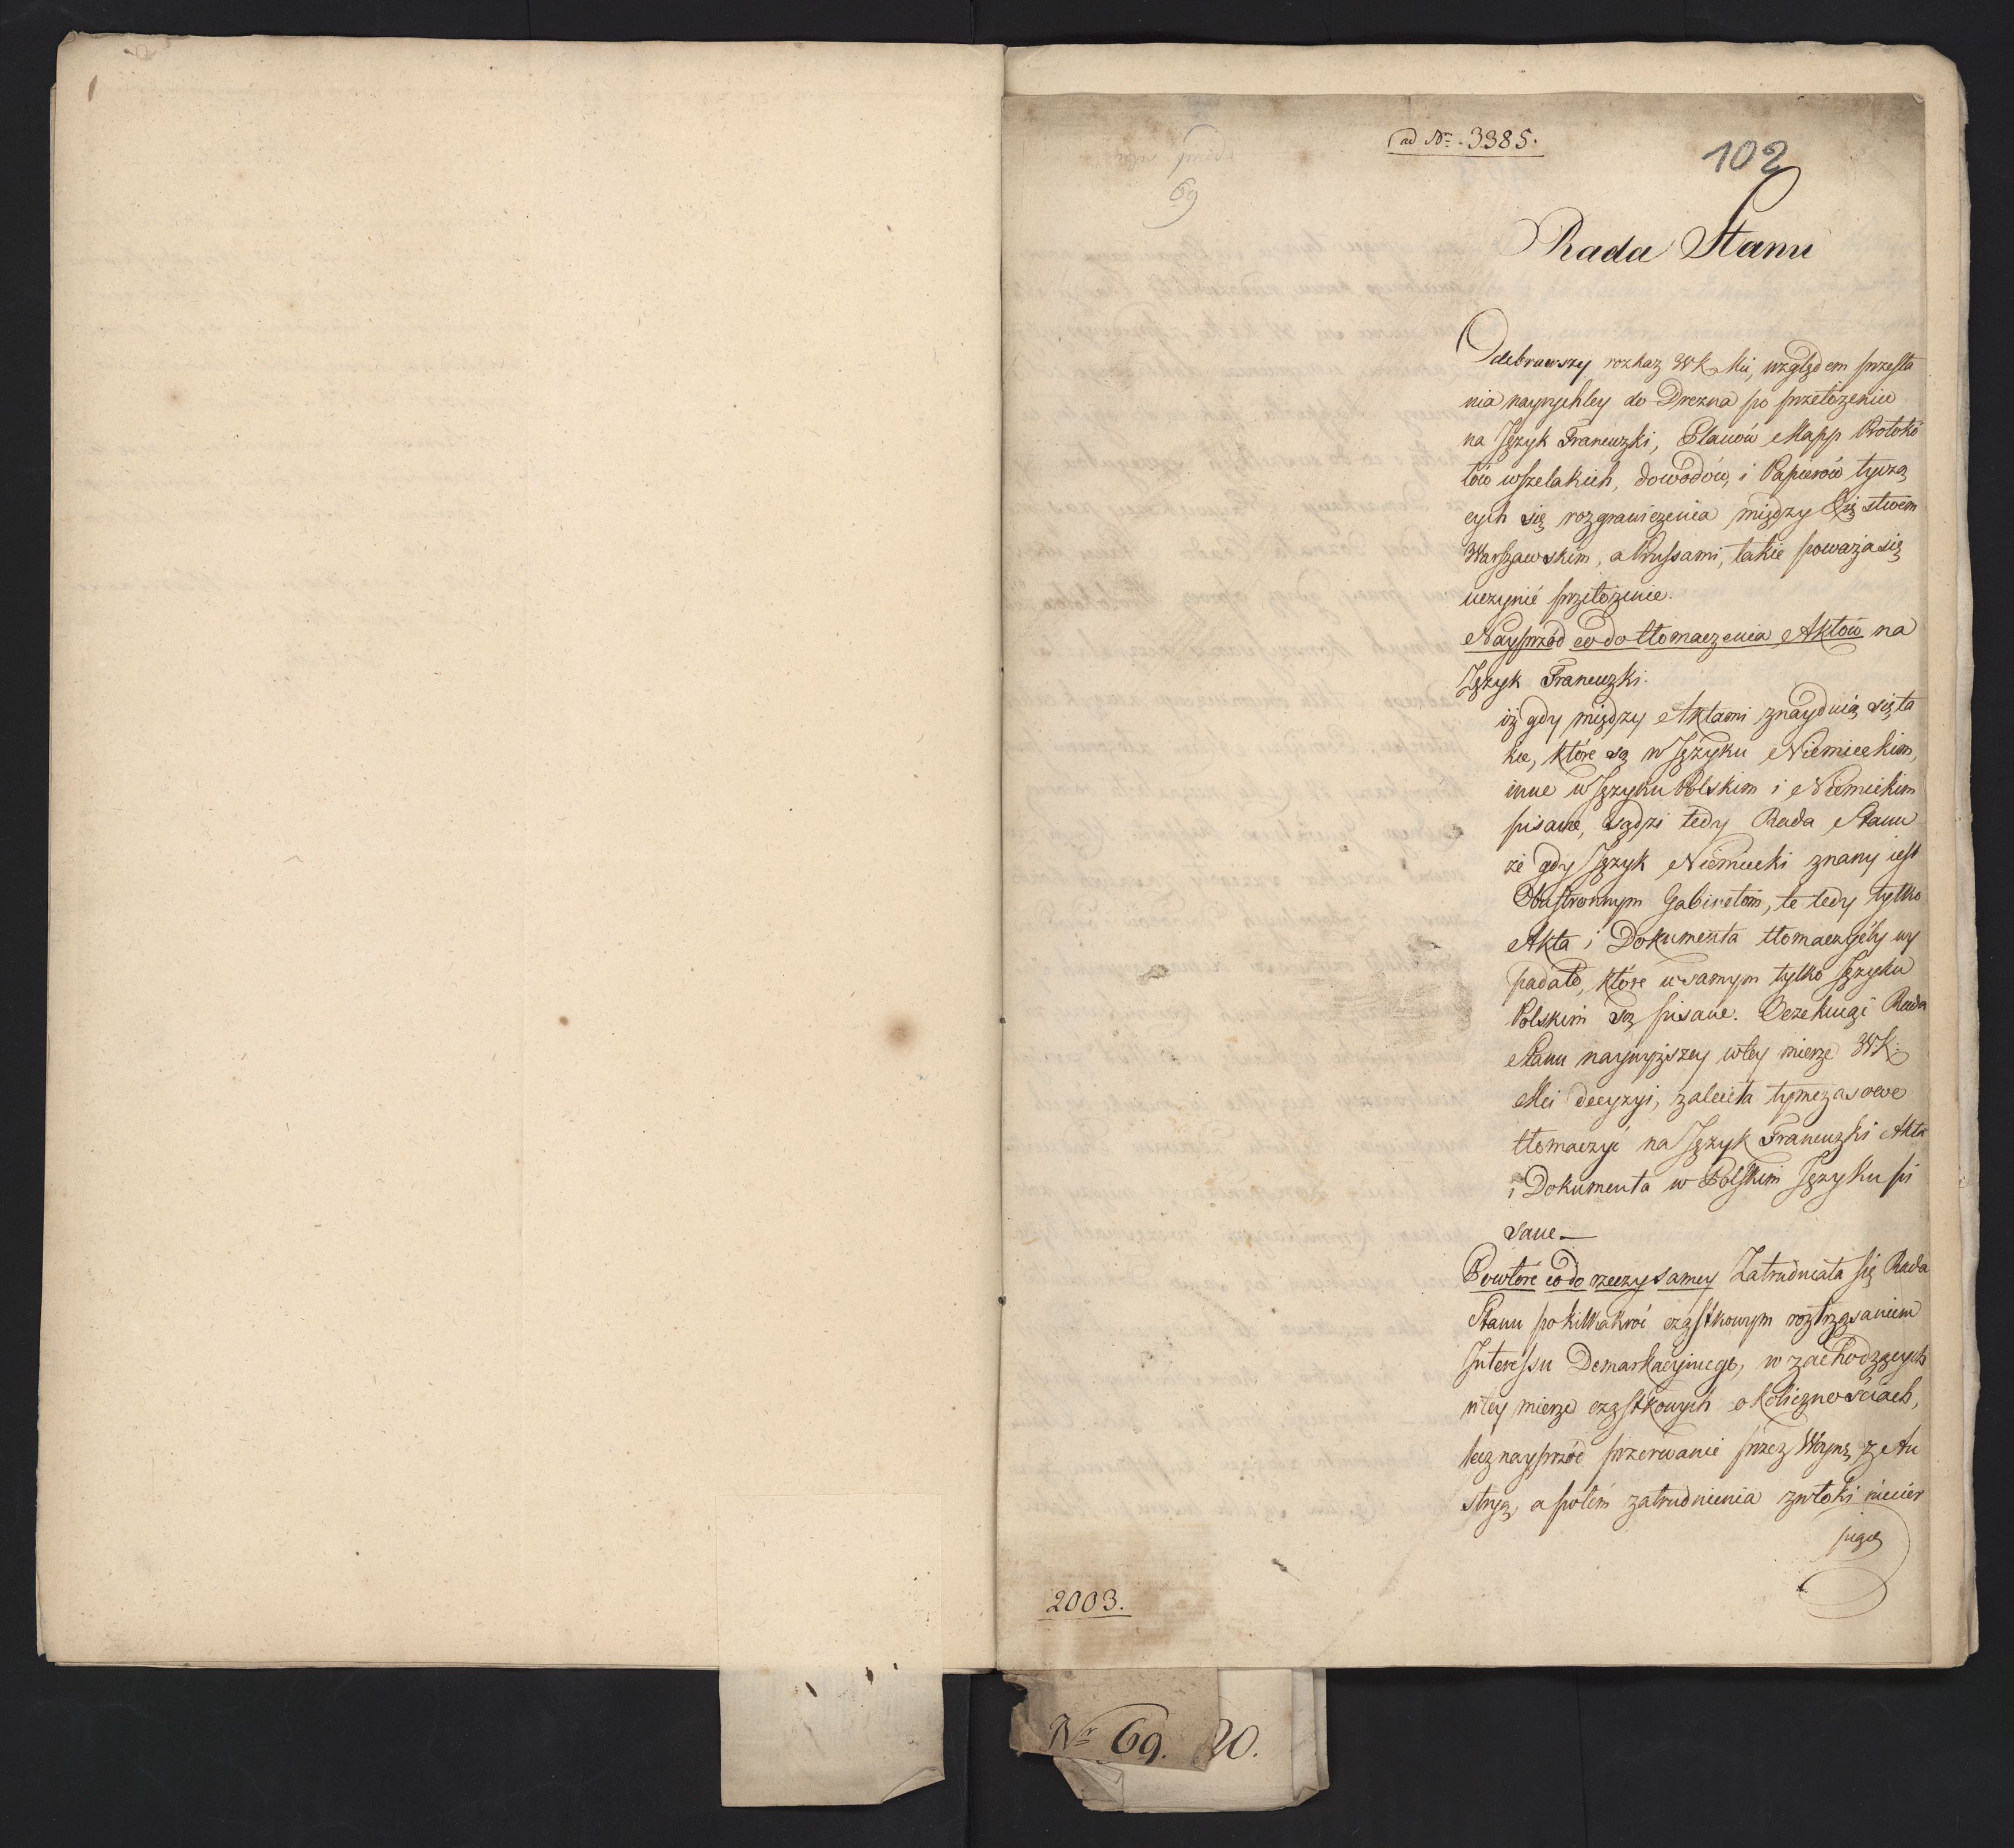 ad Nr. 3385.
102
69
Rada Stanu
Odebrawszy rozkaz WK Mci, względem przesła
nia nayrychley do Drezna po przełożeniu
na Język Francuzki, Planów Mapp Protokó
łów wszelakich, dowodów, i Papierów tyczą
cych się rozgraniczenia między Xięstwem
Warszawskim, a Prussami, takie poważa się
uczynić przełożenie.
Nayprzód co do tłomaczenia Aktów na
Język Francuzki.
iż gdy między Aktami znayduią się ta
kie, które są w Języku Niemieckim,
inne w Języku Polskim i Niemieckim
pisane, sądzi tedy Rada Stanu
że gdy Język Niemiecki znany iest
Obustronnym Gabinetom, te tedy tylko
Akta i Dokumenta tłomaczyćby wy
padało, które w samym tylko Języku
Polskim są pisane. Oczekując Rada
Stanu naywyższey w tey mierze WK.
Mci decyzyi, zaleciła tymczasowe
tłomaczyć na Język Francuzki Akta
i Dokumenta w Polskim Języku pi
sane —
Powtóre co do rzeczy samey Zatrudniała się Rada
Stanu po kilkakroć cząstkowym roztrząsaniem
Interessu Demarkacyinego, w zachodzących
w tey mierze cząstkowych okolicznościach,
lecz nayprzód przerwanie przez Woynę z Au
stryą, a potém zatrudnienia zwłoki niecier
piące
2003.
Nr 69. 20.